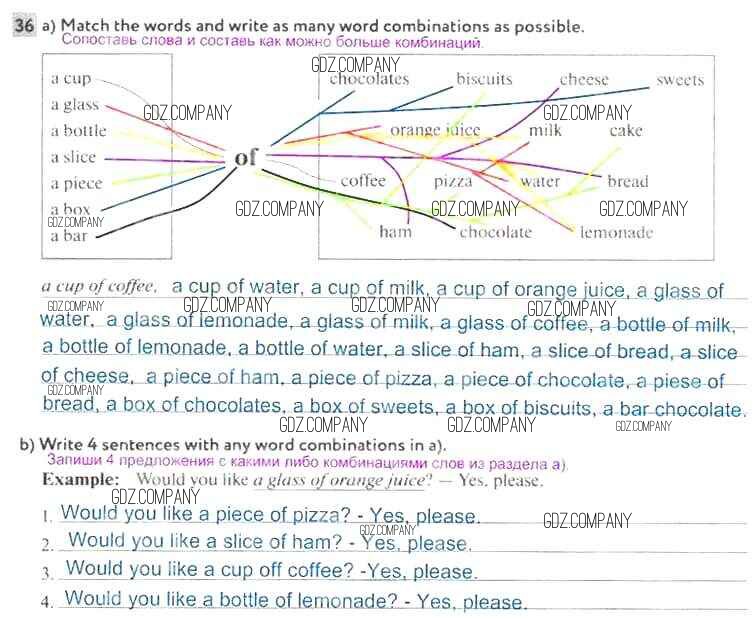 36 a) Match the words and write as many word combinations as possible.
Сопоставь слова и составь как можно больше комбинаций.
GDZ.COMPANY
a cup chocolates biscuits cheese sweets
a glass GDZ.COMPANY GDZ.COMPANY
a bottle orange juice milk cake
a slice of
a piece coffee pizza water bread
a box GDZ.COMPANY GDZ.COMPANY GDZ.COMPANY
GDZ.COMPANY
a bar ham chocolate lemonade
a cup of coffee, a cup of water, a cup of milk, a cup of orange juice, a glass of
GDZ.COMPANY GDZ.COMPANY GDZ.COMPANY GDZ.COMPANY
water, a glass of lemonade, a glass of milk, a glass of coffee, a bottle of milk,
a bottle of lemonade, a bottle of water, a slice of ham, a slice of bread, a slice
of cheese, a piece of ham, a piece of pizza, a piece of chocolate, a piese of
GDZ.COMPANY
bread, a box of chocolates, a box of sweets, a box of biscuits, a bar chocolate.
GDZ.COMPANY GDZ.COMPANY GDZ.COMPANY
b) Write 4 sentences with any word combinations in a).
Запиши 4 предложения с какими либо комбинациями слов из раздела а).
Example: Would you like a glass of orange juice? — Yes, please.
GDZ.COMPANY
1. Would you like a piece of pizza? - Yes, please. GDZ.COMPANY
GDZ.COMPANY
2. Would you like a slice of ham? - Yes, please.
3. Would you like a cup off coffee? -Yes, please.
4. Would you like a bottle of lemonade? - Yes, please.